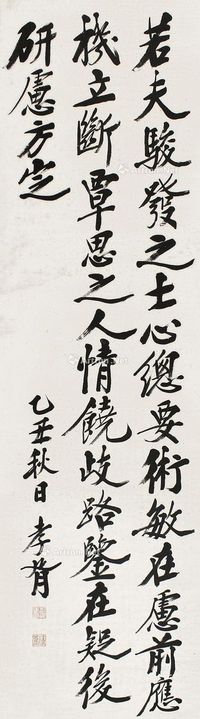 若夫駿發之士心總要術敏在慮前應
機立斷覃思之人情饒歧路鑒在疑後
研慮方定
乙丑秋日 孝胥